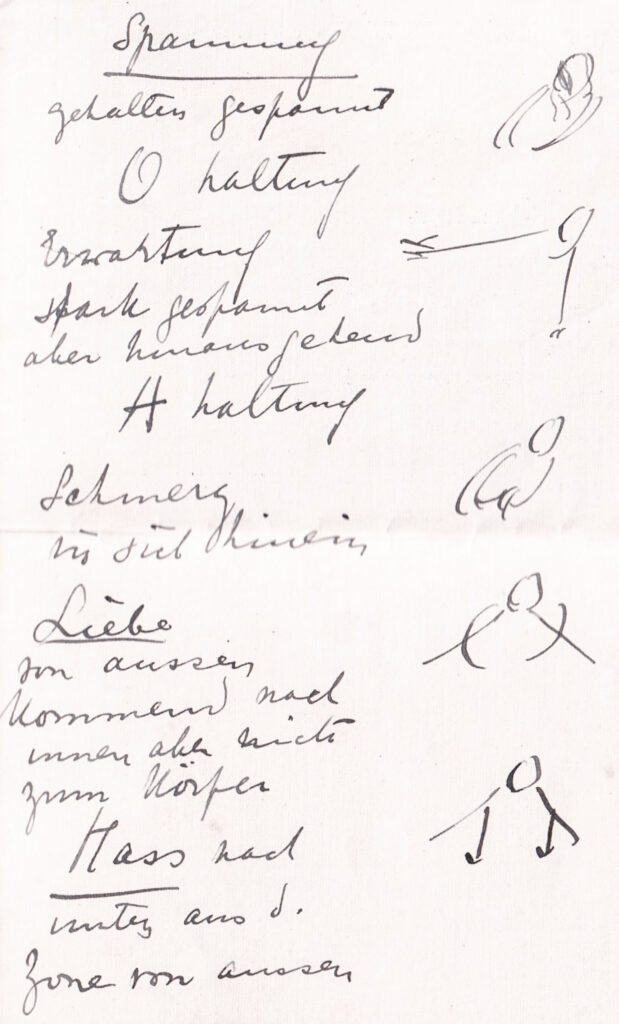 Spannung
gehalten gespannt
O haltung
Erwartung
stark gespannt
aber hinausgehend
A haltung
Schmerz
in sich hinein
Liebe
von aussen
kommend nach
innen aber nicht
zum Körper
Hass nach
unten aus d.
Zone von aussen